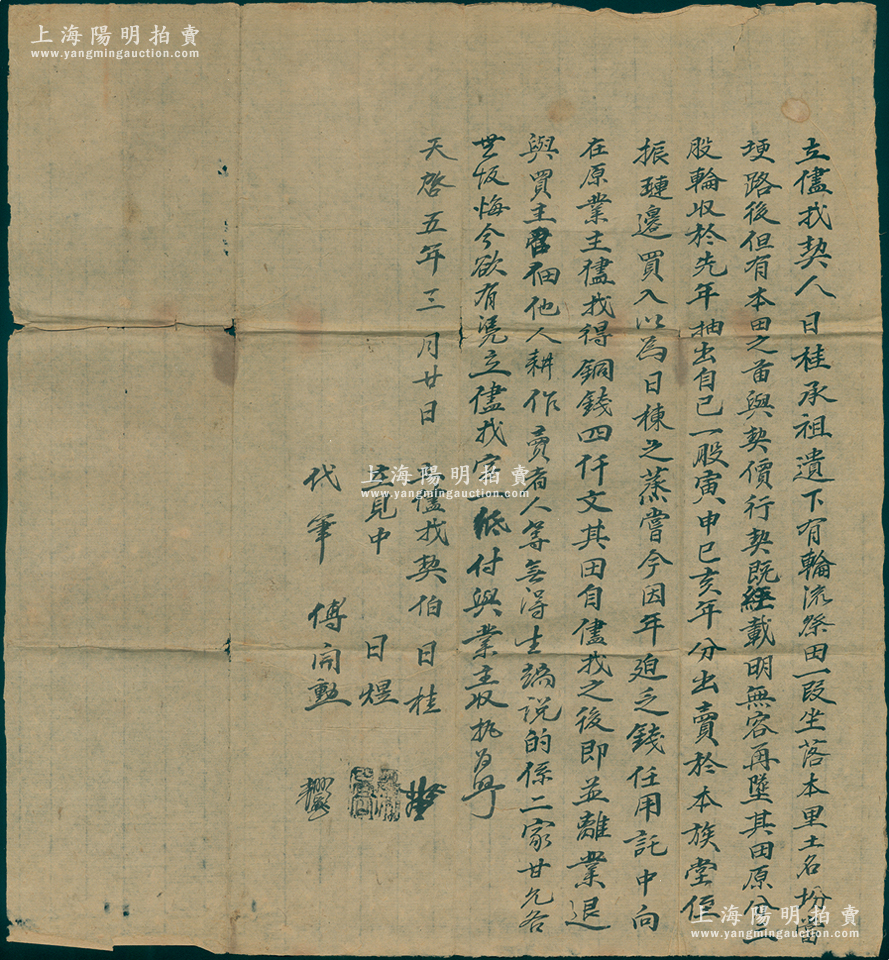 上海陽明拍賣
www.yangmingauction.com
立儘找契人日桂承祖遺下有輪流祭田一段坐落本里土名坋當
埂路後但有本田之畝與契價行契既經載明無容再墜其田原分
股輪収於先年抽出自己一股寅申巳亥年分出賣於本族堂侄
振璉邊買入以為日棟之蒸嘗今因年廹乏錢任用託中向
在原業主儘找得銅錢四仟文其田自儘找之後即並離業退
與買主召佃他人耕作賣者人等無得生端説的係二家甘允各
無仮悔今欲有凭立儘找字一紙付與業主収执為炤
天啓五年三月廿日
立儘找契伯日桂
立見中 日煜
代筆 傅開勲
上海陽明拍賣
www.yangmingauction.com
上海陽明拍賣
www.yangmingauction.com